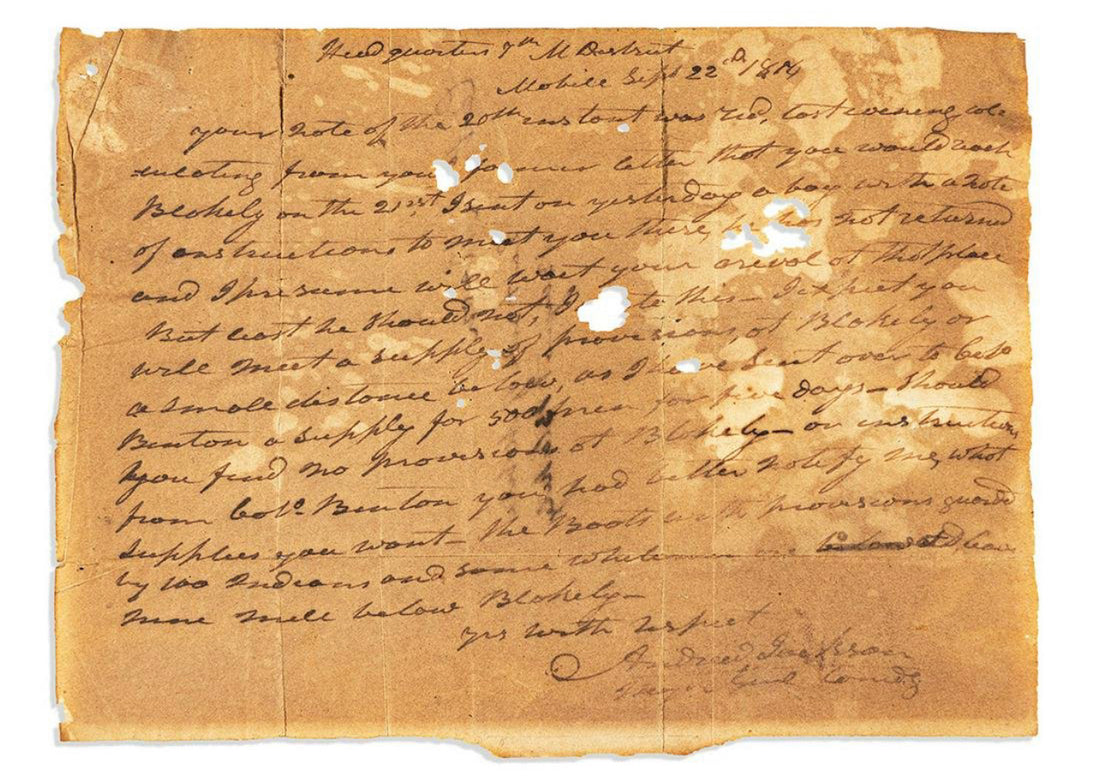 Headquarters 7th M District
Mobile Sept 22d 1814
your note of the 20th instant was recd, last evening, cal-
culating from your former letter that you would reach
Blakely on the 21rst I sent on yesterday a boy with a note
of instructions to meet you there, he has not returned
and I presume will wait your arival at that place
But least he should not, I to this— I expect you
will meet a supply of provisions, at Blakely or
a small distance below, as I have sent over to Colo
Benton a supply for 500 men for five days— Should
you find no provisions at Blakely— or instructions
from Colo. Benton you had better notify me, what
supplies you want— the Boats with provisions guard
by 100 Indians and some whitemen
nine mill below Blakely—
yrs with respect
Andrew Jackson
Major Genl Comdg